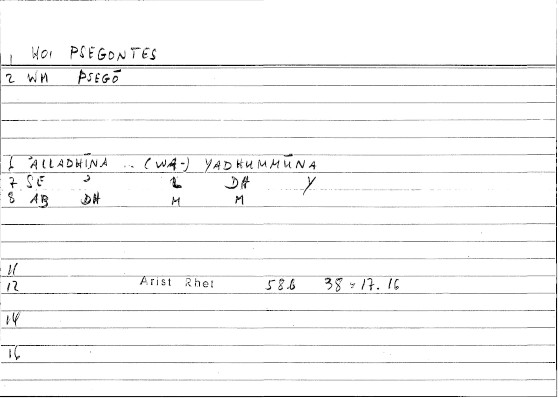 1 HOI PSEGONTES
2 WM PSEGŌ
6 ʾALLADHĪNA .. (WA-) YADHUMMŪNA
7 SE ʾ L DH Y
8 AB DH M M
11
12 Arist Rhet 58.6 38 = 17.16
14
16